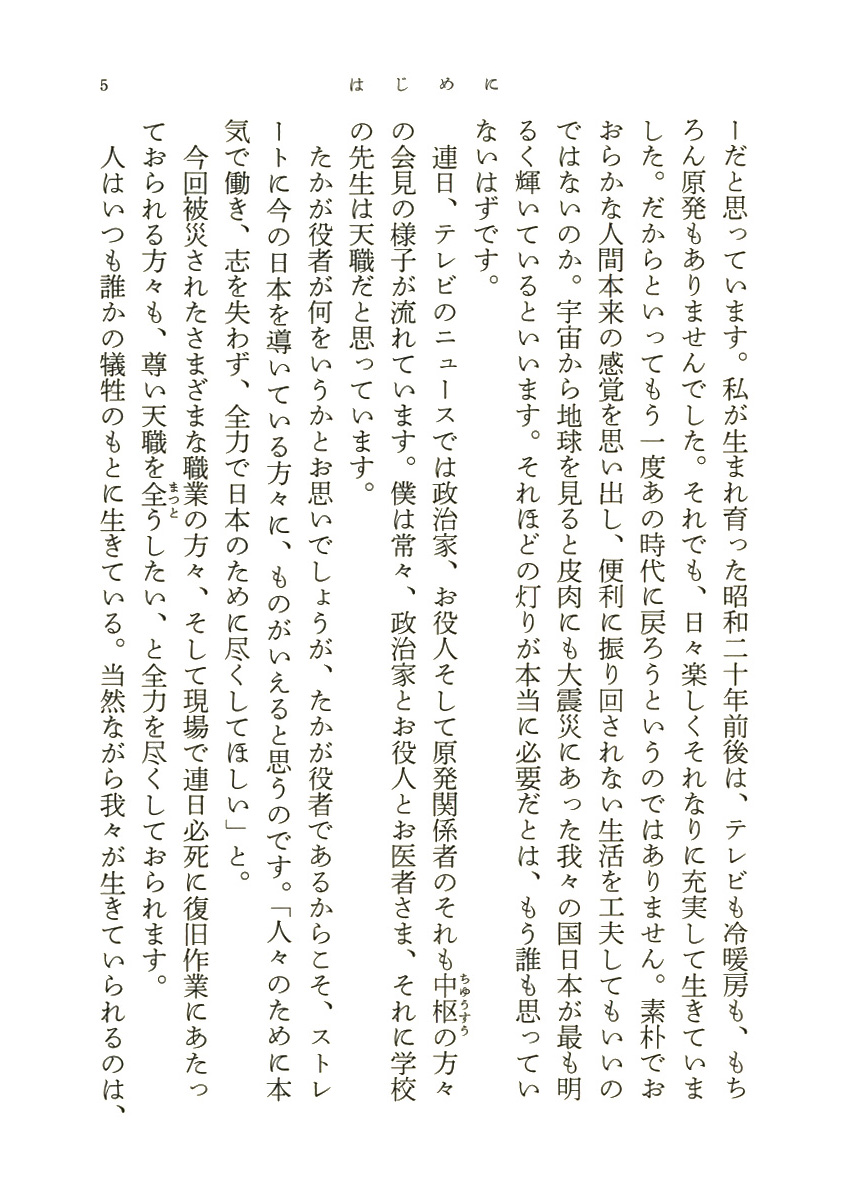 5
はじめに
ーだと思っています。私が生まれ育った昭和二十年前後は、テレビも冷暖房も、もち
ろん原発もありませんでした。それでも、日々楽しくそれなりに充実して生きていま
した。だからといってもう一度あの時代に戻ろうというのではありません。素朴でお
おらかな人間本来の感覚を思い出し、便利に振り回されない生活を工夫してもいいの
ではないのか。宇宙から地球を見ると皮肉にも大震災にあった我々の国日本が最も明
るく輝いているといいます。それほどの灯りが本当に必要だとは、もう誰も思ってい
ないはずです。
連日、テレビのニュースでは政治家、お役人そして原発関係者のそれも中枢の方々
ちゆうすう
の会見の様子が流れています。僕は常々、政治家とお役人とお医者さま、それに学校
の先生は天職だと思っています。
たかが役者が何をいうかとお思いでしょうが、たかが役者であるからこそ、ストレ
ートに今の日本を導いている方々に、ものがいえると思うのです。「人々のために本
気で働き、志を失わず、全力で日本のために尽くしてほしい」と。
今回被災されたさまざまな職業の方々、そして現場で連日必死に復旧作業にあたっ
ておられる方々も、尊い天職を全うしたい、と全力を尽くしておられます。
まつと
人はいつも誰かの犠牲のもとに生きている。当然ながら我々が生きていられるのは、